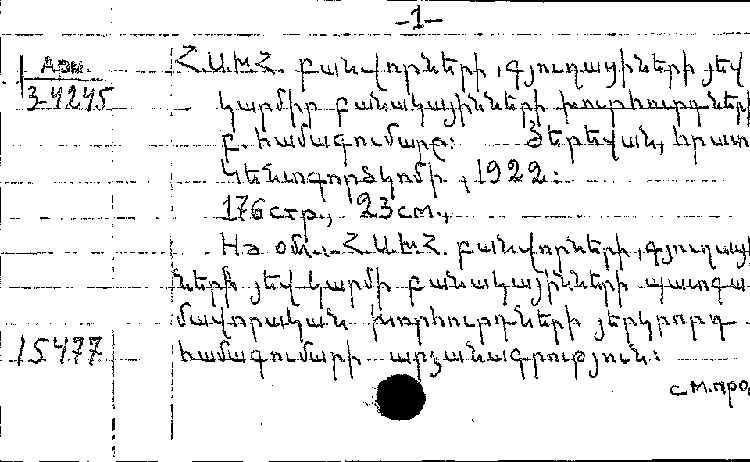 -1-
Арм.
3-4245
Հ.Ս.Խ.Հ. բանվորների, գյուղացիների յեվ
կարմիր բանակայինների խորհուրդների
բ. համագումարը: Յերեվան, հրատ
Կենտգործկոմի, 1922:
176стр., 23см.,
На обл.-Հ.Ս.Խ.Հ. բանվորների, գյուղացի
ների յեվ կարմի բանակայինների պատգա
մավորական խորհուրդների յերկրորդ
15477
համագումարի արձանագրություն:
см.про